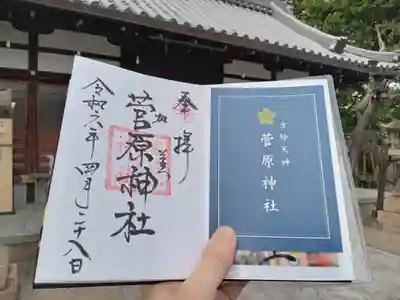 奉拝
菅原神社
令和六年四月二十八日
方除天神
菅原神社